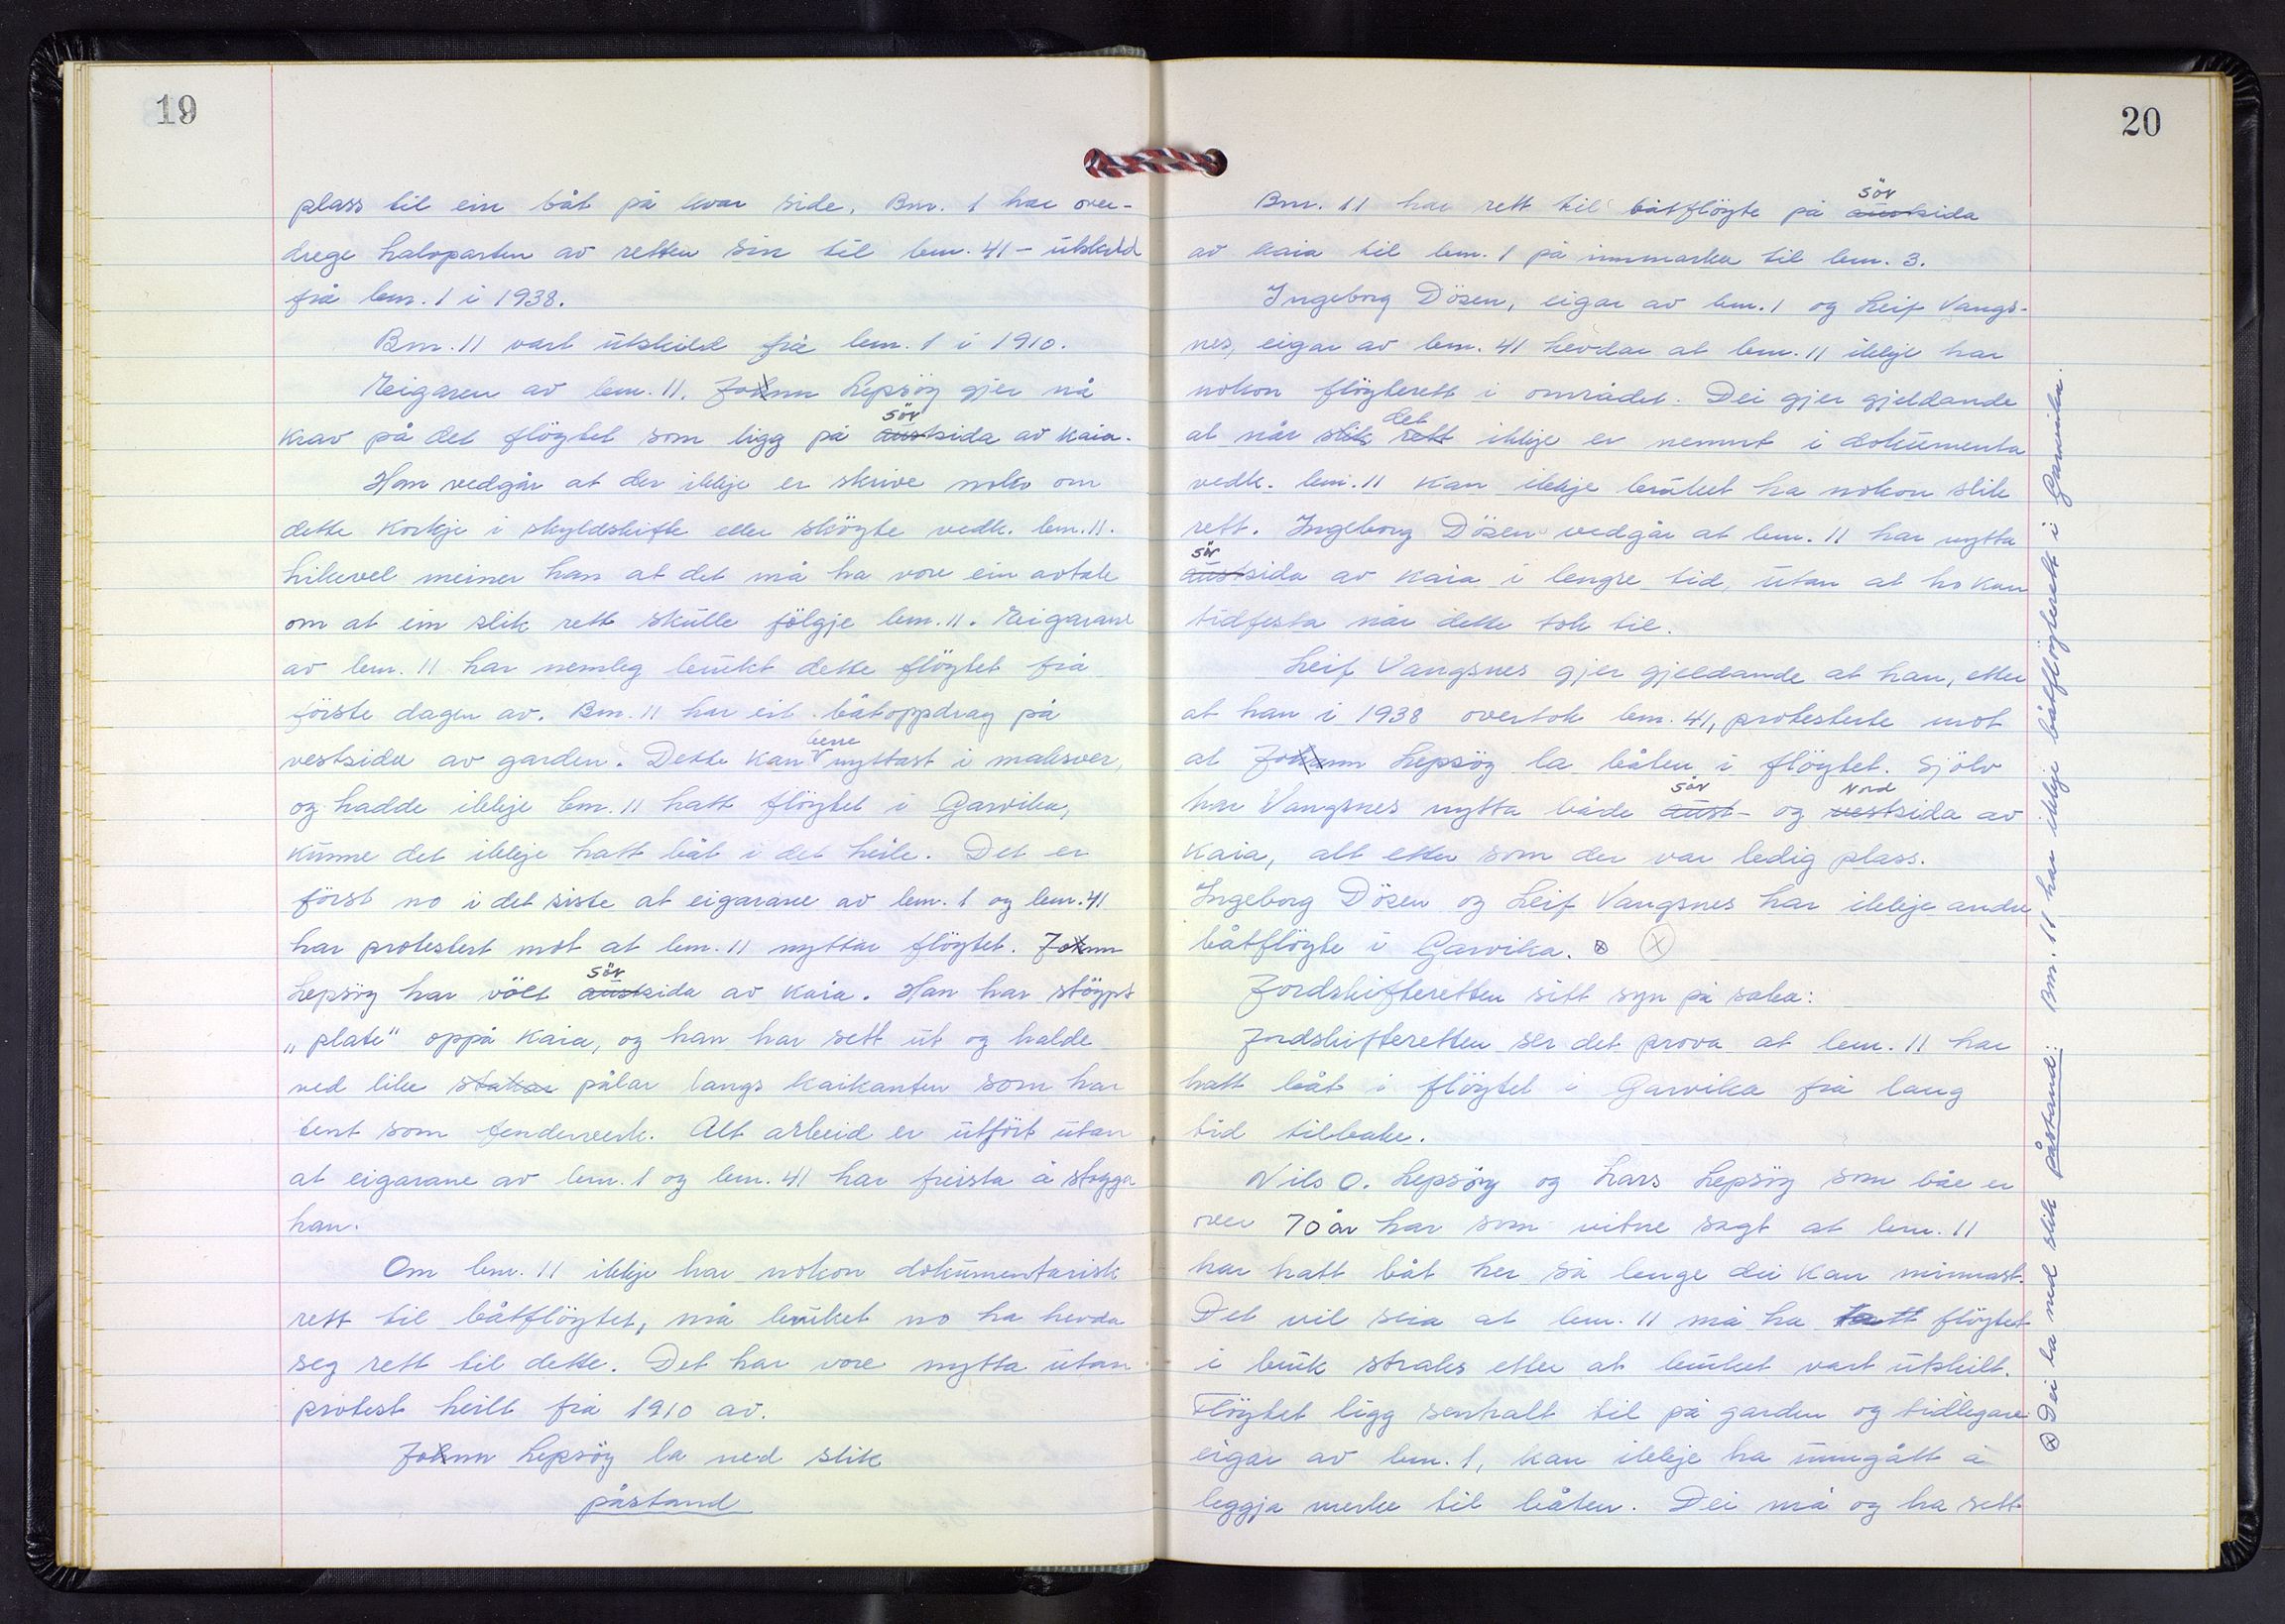 19
plass til ein båt på kvar side. Bnr. 1 har over-
drege halvparten av retten sin til bnr. 41 - utskild
frå bnr. 1 i 1938.
Bnr. 11 vart utskild frå bnr. 1 i 1910.
Eigaren av bnr. 11. Johnn Lepsöy gjer nå
sör
krav på det flöytet som ligg på austsida av kaia.
Han vedgår at der ikkje er skrive noko om
dette korkje i skyldskifte eller sköyte vedk. bnr. 11.
Likevel meiner han at det må ha vore ein avtale
om at ein slik rett skulle fölgje bnr. 11. Eigarane
av bnr. 11 har nemleg brukt dette flöytet frå
förste dagen av. Bnr. 11 har eit båtoppdrag på
berre
vestsida av garden. Dette kan nyttast i maksver,
og hadde ikkje bnr. 11 hatt flöytet i Garvika,
kunne det ikkje hatt båt i det heile. Det er
först no i det siste at eigarane av bnr. 1 og bnr. 41
har protestert mot at bnr. 11 nyttar flöytet. Johnn
sör
Lepsöy har völt austsida av kaia. Han har stöypt
„plate" oppå kaia, og han har sett ut og halde
ved like stakar pålar langs kaikanten som har
tent som fenderverk. Alt arbeid er utfört utan
at eigarane av bnr. 1 og bnr. 41 har freista å stogga
han.
Om bnr. 11 ikkje har nokon dokumentarisk
rett til båtflöytet, må bruket no ha hevda
seg rett til dette. Det har vore nytta utan
protest heilt frå 1910 av.
Johnn Lepsöy la ned slik
påstand
20
sör
Bnr. 11 har rett til båtflöyte på austsida
av kaia til bnr. 1 på innmarka til bnr. 3.
Ingeborg Dösen, eigar av bnr. 1 og Leif Vangs-
nes, eigar av bnr. 41 hevdar at bnr. 11 ikkje har
nokon flöyterett i området. Dei gjer gjeldande
det
at når slik rett ikkje er nemnt i dokumenta
vedk. bnr. 11 kan ikkje bruket ha nokon slik
rett. Ingeborg Dösen vedgår at bnr. 11 har nytta
sör
austsida av kaia i lengre tid, utan at ho kan
tidfesta når dette tok til.
Leif Vangsnes gjer gjeldande at han, etter
at han i 1938 overtok bnr. 41, protesterte mot
at Johann Lepsöy la båten i flöytet. Sjölv
sör nord
har Vangsnes nytta både aust- og vestsida av
kaia, alt etter som der var ledig plass.
Ingeborg Dösen og Leif Vangsnes har ikkje andre
båtflöyte i Garvika. ⊗ ⊗
Jordskifteretten sitt syn på saka:
Jordskifteretten ser det prova at bnr. 11 har
hatt båt i flöytet i Garvika frå lang
tid tilbake.
Nils O. Lepsöy og Lars Lepsöy som båe er
over 70 år har som vitne sagt at bnr. 11
har hatt båt her så lenge dei kan minnast.
Det vil seia at bnr. 11 må ha tatt flöytet
i bruk straks etter at bruket vart utskilt.
Flöytet ligg sentralt til på garden og tidlegare
eigar av bnr. 1, kan ikkje ha unngått å
leggja merke til båten. Dei må og ha sett
⊗ Dei la ned slik påstand: Bnr. 11 har ikkje båtflöyterett i Garvika.